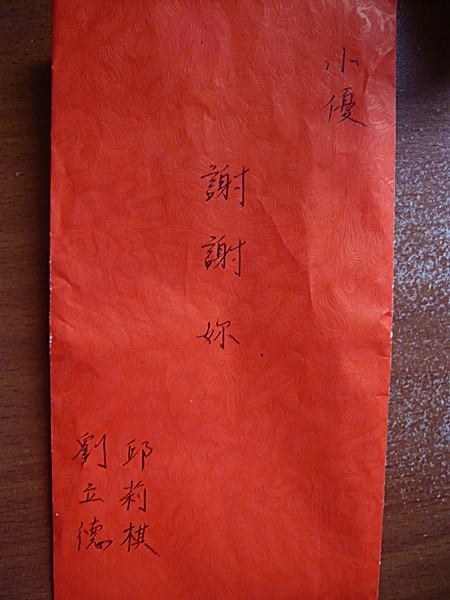 小優
謝謝妳
邱莉棋
劉立德